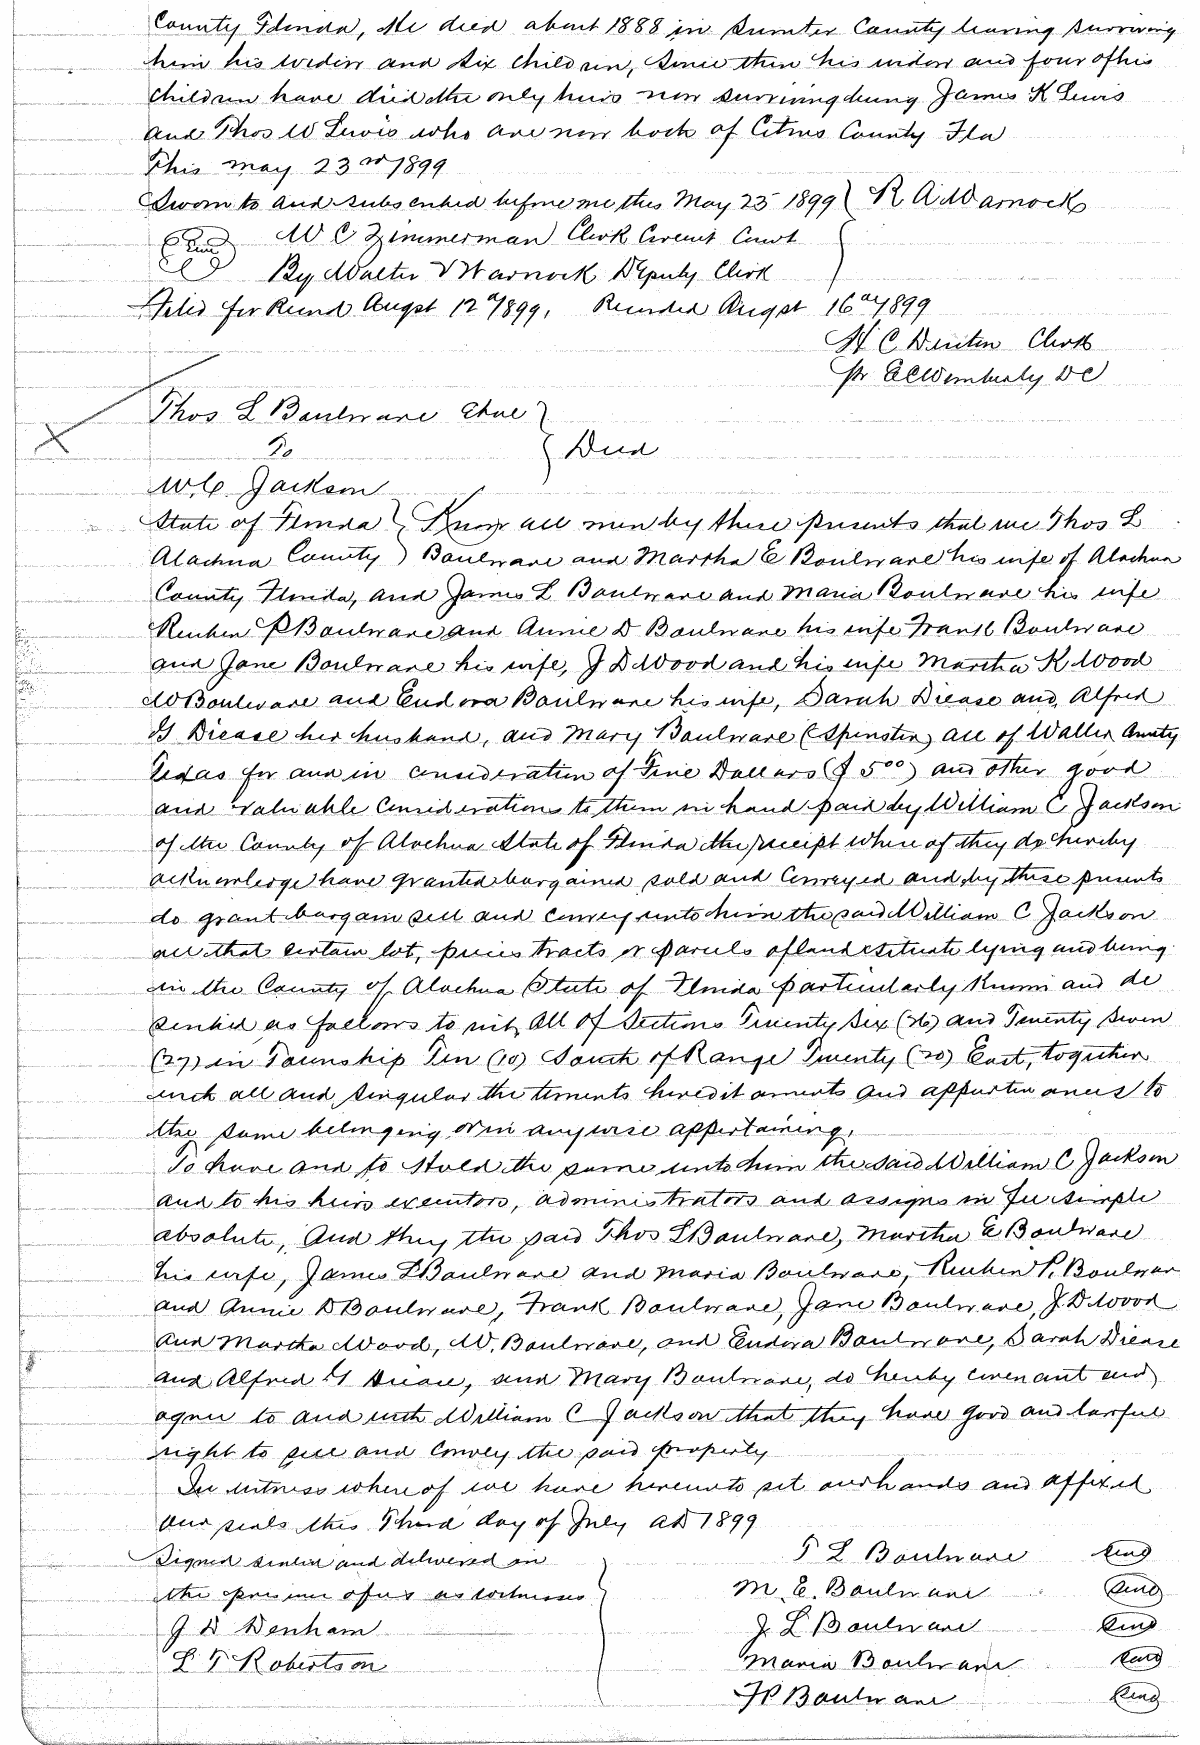 County Florida, He died about 1888 in Sumter County leaving surviving
him his widow and six children, Since then his widow and four of his
children have died the only heirs now surviving being James K Lewis
and Thos W Lewis who are now both of Citrus County Fla
This may 23rd 1899
Sworn to and subscribed before me this May 23 1899 } R A Warnock
(Seal) W C Zimmerman Clerk Circuit Court
By Walter V Warnock Deputy Clerk
Filed for Record Augst 12th 1899, Recorded Augst 16th 1899
H C Denton Clerk
pr S C Wimberly DC
Thos L Boulware et ux }
To } Deed
W.C. Jackson
State of Florida } Know all men by these presents that we Thos L
Alachua County } Boulware and Martha E Boulware his wife of Alachua
County Florida, and James L Boulware and Maria Boulware his wife
Reuben P Boulware and Annie D Boulware his wife Frank Boulware
and Jane Boulware his wife, J D Wood and his wife Martha K Wood
W Boulware and Eudora Boulware his wife, Sarah Diease and Alfred
G Diease her husband, and Mary Boulware (Spinster) all of Waller County
Texas for and in consideration of Five Dollars ($ 5 00) and other good
and valuable Considerations to them in hand paid by William C Jackson
of the County of Alachua State of Florida the receipt where of they do hereby
acknowlerge have granted bargained sold and Conveyed and by these presents
do grant bargain sell and convey unto him the said William C Jackson
all that certain lot, pieces tracts or parcels of land situate lying and being
in the County of Alachua State of Florida particularly Known and de
scribed as follows to wit, All of Sections Twenty Six (26) and Twenty Seven
(27) in Township Ten (10) South of Range Twenty (20) East, together
with all and singular the tements heredit aments and appurten ances to
the same belonging or in anywise appertaining,
To have and to Hold the same unto him the said William C Jackson
and to his heirs executors, administrators and assigns in fee simple
absolute, And they the said Thos L Boulware, Martha E Boulware
his wife, James L Boulware and Maria Boulware, Reuben P. Boulwar
and Annie D Boulware, Frank Boulware, Jane Boulware, J. D Wood
and Martha Wood, W. Boulware, and Eudora Boulware, Sarah Diease
and Alfred G Diease, and Mary Boulware, do hereby covenant and
agree to and with William C Jackson that they have good and lawful
right to sell and Convey the said property
In witness where of we have hereunto set our hands and affixed
our seals this Third day of July AD 1899
Signed sealed and delivered in
the presence of us as witnesses
J D Denham
L T Robertson
T L Boulware Seal
M. E. Boulware Seal
J. L Boulware Seal
Maria Boulware Seal
F P Boulware Seal